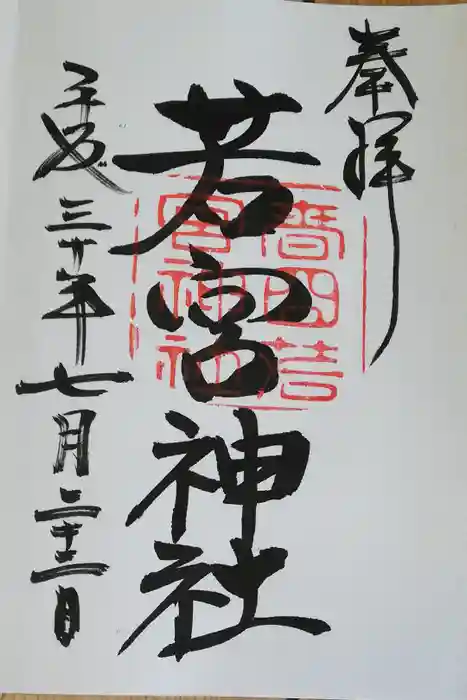 奉拝
若宮神社
平成三十年七月二十二日
若
宮神社